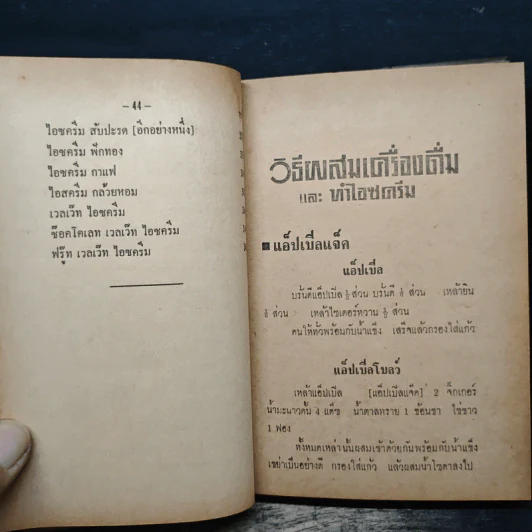 - 44 -
ไอซครีม สับปะรด [อีกอย่างหนึ่ง]
ไอซครีม ฟักทอง
ไอซครีม กาแฟ
ไอสครีม กล้วยหอม
เวลเว๊ท ไอซครีม
ช๊อคโคเลท เวลเว๊ท ไอซครีม
ฟรู๊ท เวลเว๊ท ไอซครีม
วิธีผสมเครื่องดื่ม
และ ทำไอซครีม
แอ็ปเปิลแจ็ค
แอ็ปเปิล
บรั่นดีแอ็ปเปิล ส่วน บรั่นดี ส่วน เหล้ายิน
ส่วน เหล้าไซเดอร์หวาน ส่วน
คนให้ทั่วพร้อมกับน้ำแข็ง เสร็จแล้วกรองใส่แก้ว
แอ็ปเปิลโบลว์
เหล้าแอ็ปเปิล [แอ็ปเปิลแจ็ค] 2 จิ๊กเกอร์
น้ำมะนาวคั้น 4 แด๊ช น้ำตาลทราย 1 ช้อนชา ไข่ขาว
1 ฟอง
ทั้งหมดเหล่านั้นผสมเข้าด้วยกันพร้อมกับน้ำแข็ง
เขย่าเป็นอย่างดี กรองใส่แก้ว แล้วผสมน้ำโซดาลงไป